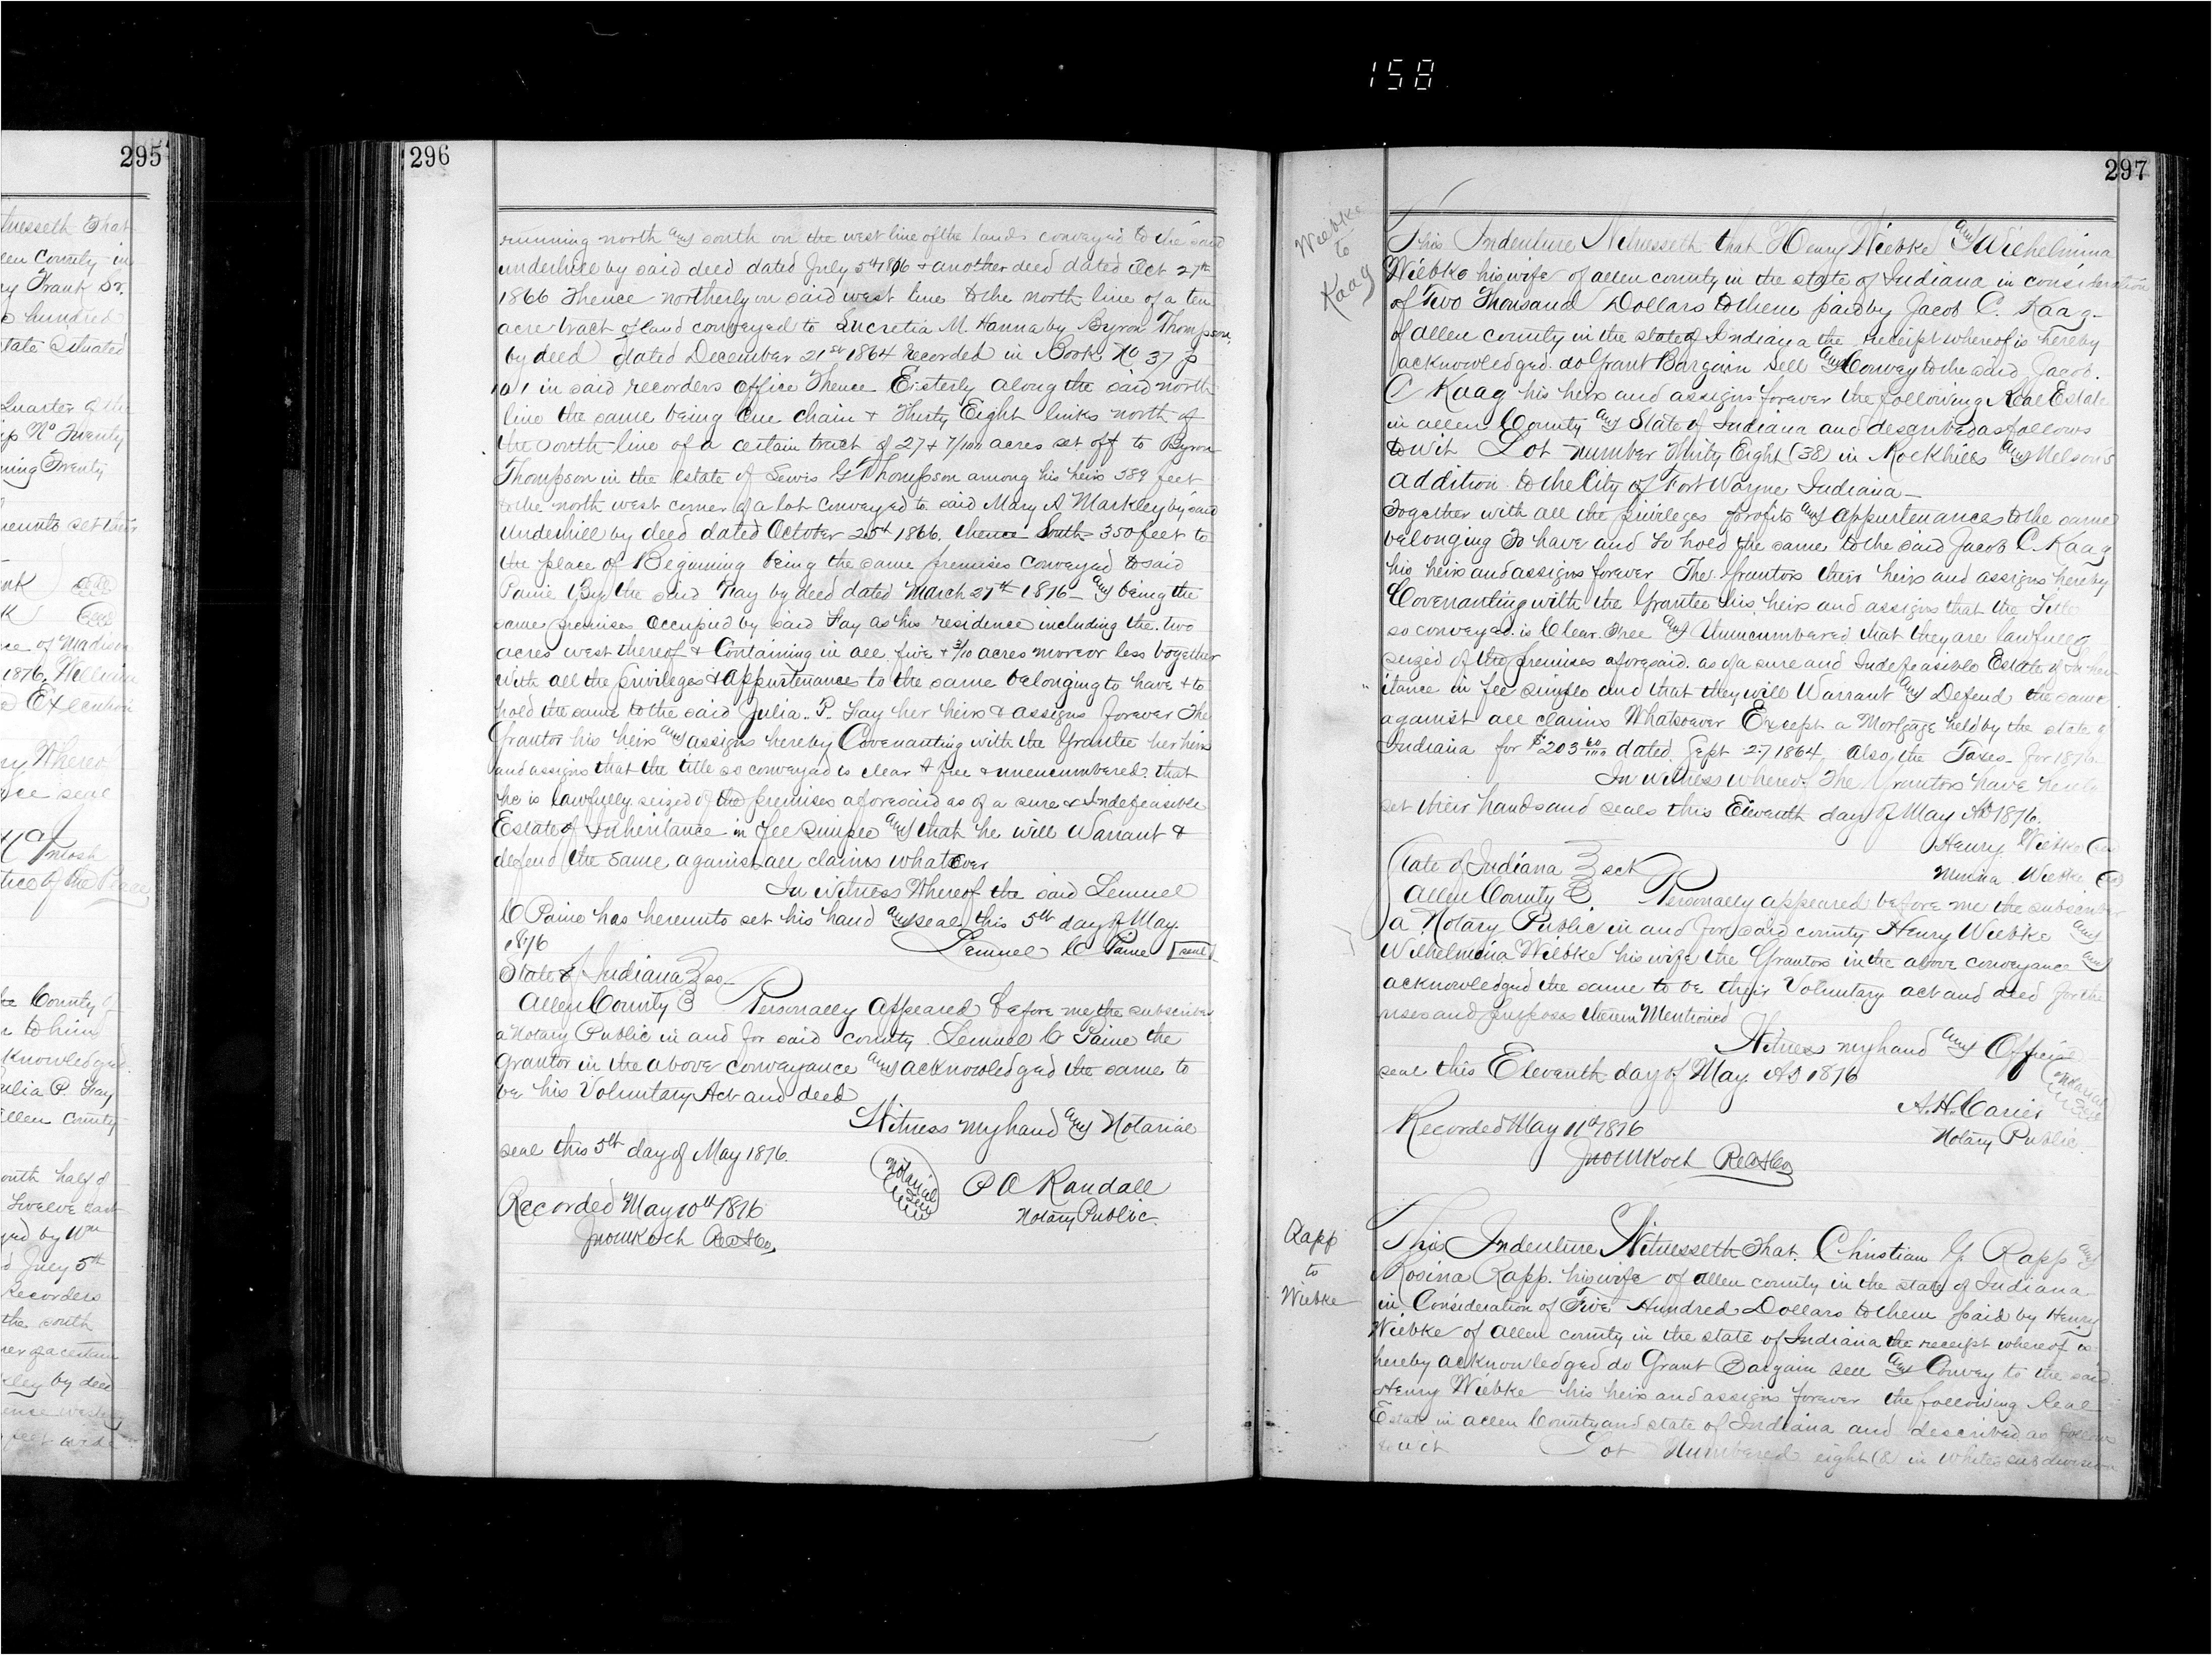 158
295
tnesseth that
en County in
ry Frank Sr.
hundred
tate Situated
Quarter of the
ip No Twenty
ning Twenty
hereunto set their
ce of Madison
1876. William
Execution
ry Whereo
seal
Intosh
tice of the Peace
County of
to him
knowledged
ulia P. Fay
Allen County
outh half of
Twelve East
yed by Wm
d July 5th
Recorders
the south
ner of a certain
kley by deed
ence westerly
feet wide
296
running north and south on the west line of the lands conveyed to the said
underhill by said deed dated July 5th 1866 & another deed dated Oct 27th
1866 Thence northerly on said west line to the north line of a ten
acre tract of land conveyed to Lucretia M. Hanna by Byron Thompson,
by deed dated December 21st 1864 recorded in Book No 37 p
101 in said recorders office Thence Easterly along the said north
line the same being One chain & Thirty Eight links north of
the south line of a certain tract of 27 & 7/100 acres set off to Byron
Thompson in the estate of Lewis G Thompson among his heirs 389 feet
to the north west corner of a lot conveyed to said Mary A Markley by said
Underhill by deed dated October 25th 1866, thence South 350 feet to
the place of Beginning being the same premises conveyed to said
Paine By the said Fay by deed dated March 27th 1876 and being the
same premises occupied by said Fay as his residence including the two
acres west thereof & Containing in all five & 3/10 acres more or less together
with all the privileges & appurtenances to the same belonging to have & to
hold the same to the said Julia P. Fay her heirs & assigns forever The
Grantor his heirs and assigns hereby Covenanting with the Grantee her heirs
and assigns that the title so conveyed is clear & free & unencumbered that
he is lawfully seized of the premises aforesaid as of a sure & Indefeasible
Estate of Inheritance in fee simple and that he will Warrant &
defend the same against all claims whatsoever
In witness Whereof the said Lemuel
C Paine has hereunto set his hand and seal this 5th day of May
1876 Lemuel C Paine seal
State of Indiana ss
Allen County Personally appeared before me the subscriber
a Notary Public in and for said county Lemuel C Paine the
Grantor in the above conveyance and acknowledged the same to
be his Voluntary Act and deed
Witness my hand and Notarial
seal this 5th day of May 1876.
Notarial Seal
P A Randall
Notary Public
Recorded May 10th 1876
Jno M Koch Rec A Co
297
Wiebke
to
Kaag
This Indenture Witnesseth that Henry Wiebke and Wilhelmina
Wiebke his wife of allen county in the state of Indiana in consideration
of Two Thousand Dollars to them paid by Jacob C. Kaag
of allen county in the state of Indiana the receipt whereof is hereby
acknowledged do Grant Bargain Sell and Convey to the said Jacob.
C Kaag his heirs and assigns forever the following Real Estate
in allen County and State of Indiana and described as follows
to wit Lot number Thirty Eight (38) in Rockhills and Nelson's
addition to the City of Fort Wayne Indiana
Together with all the privileges profits and appurtenances to the same
belonging To have and to hold the same to the said Jacob C. Kaag
his heirs and assigns forever The Grantors their heirs and assigns hereby
Covenanting with the Grantee his heirs and assigns that the Title
so conveyed is Clear Free and Unincumbered that they are lawfully
seized of the premises aforesaid as of a sure and Indefeasible Estate of Inher
itance in fee simple and that they will Warrant and Defend the same
against all claims Whatsoever Except a Mortgage held by the state of
Indiana for $203 60/100 dated Sept 27 1864 also the Taxes for 1876
In witness whereof The Grantors have hereto
set their hands and seals this Eleventh day of May AD 1876.
Henry Wiebke seal
Minna Wiebke seal
State of Indiana sct
Allen County Personally appeared before me the subscriber
a Notary Public in and for said county Henry Wiebke and
Wilhelmina Wiebke his wife the Grantors in the above conveyance and
acknowledged the same to be their Voluntary act and deed for the
uses and purposes therein Mentioned
Witness my hand and Official
seal this Eleventh day of May AD 1876
Notarial Seal
A. H. Carier
Notary Public
Recorded May 11th 1876
Jno M Koch Rec A Co
Rapp
to
Wiebke
This Indenture Witnesseth That Christian G. Rapp and
Rosina Rapp his wife of allen county in the state of Indiana
in Consideration of Five Hundred Dollars to them paid by Henry
Wiebke of allen county in the state of Indiana the receipt whereof is
hereby acknowledged do Grant Bargain sell and Convey to the said
Henry Wiebke his heirs and assigns forever the following Real
Estate in allen County and state of Indiana and described as follows
to wit Lot Numbered eight (8) in Whites subdivision